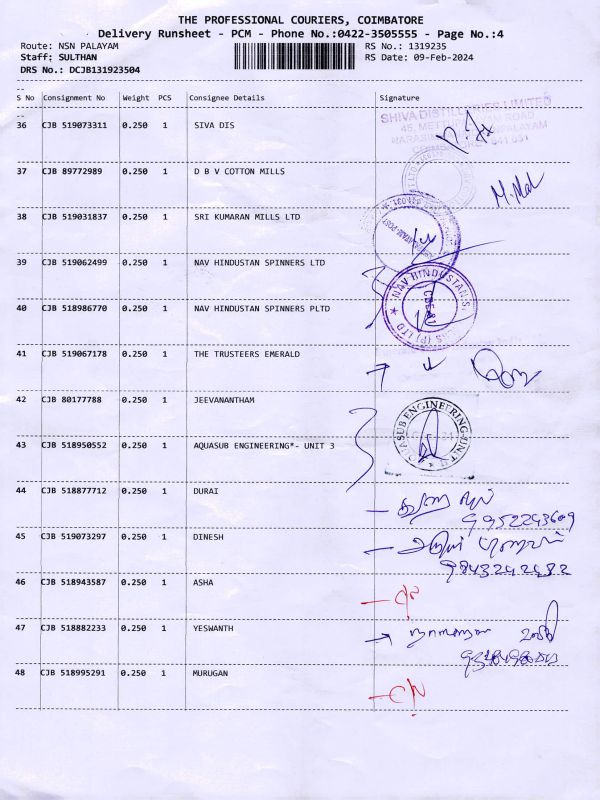 THE PROFESSIONAL COURIERS, COIMBATORE
Delivery Runsheet - PCM - Phone No.:0422-3505555 - Page No.:4
Route: NSN PALAYAM RS No.: 1319235
Staff: SULTHAN RS Date: 09-Feb-2024
DRS No.: DCJB131923504
--
S No Consignment No Weight PCS Consignee Details Signature
--
SHIVA DISTILLERIES LIMITED
36 CJB 519073311 0.250 1 SIVA DIS
37 CJB 89772989 0.250 1 D B V COTTON MILLS
M. Mal
38 CJB 519031837 0.250 1 SRI KUMARAN MILLS LTD
39 CJB 519062499 0.250 1 NAV HINDUSTAN SPINNERS LTD
NAV HINDUSTAN S
40 CJB 518986770 0.250 1 NAV HINDUSTAN SPINNERS PLTD
41 CJB 519067178 0.250 1 THE TRUSTEERS EMERALD
42 CJB 80177788 0.250 1 JEEVANANTHAM
AQUASUB ENGINEERING-UNIT II
43 CJB 518950552 0.250 1 AQUASUB ENGINEERING*- UNIT 3
44 CJB 518877712 0.250 1 DURAI
9952243609
45 CJB 519073297 0.250 1 DINESH
9843242482
46 CJB 518943587 0.250 1 ASHA
47 CJB 518882233 0.250 1 YESWANTH
48 CJB 518995291 0.250 1 MURUGAN